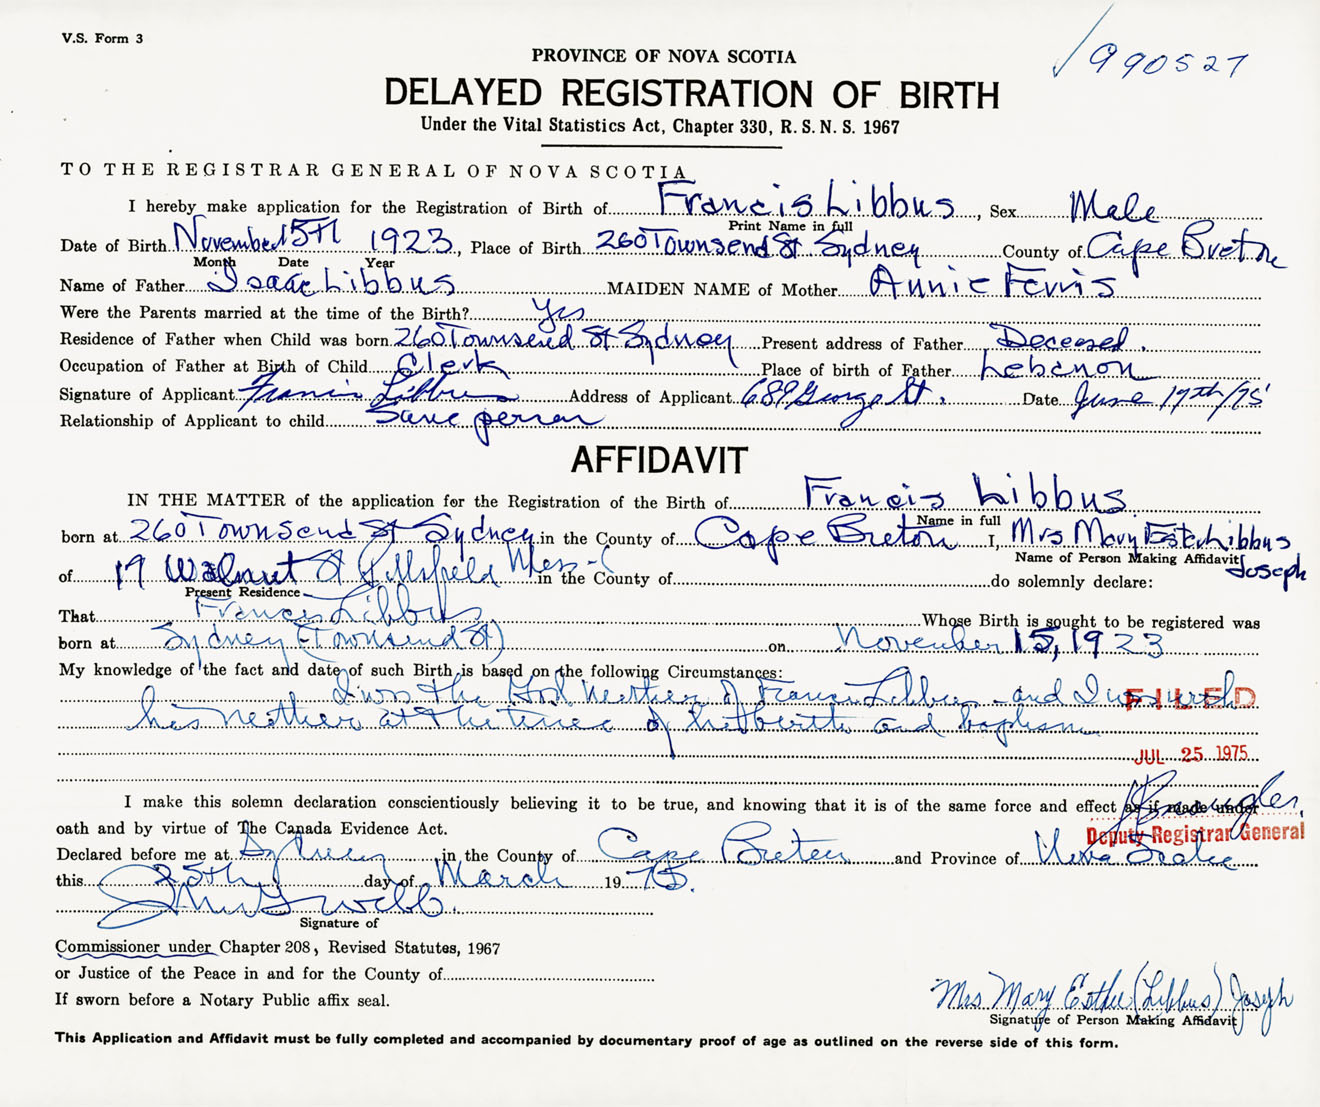 V.S. Form 3
990527
PROVINCE OF NOVA SCOTIA
DELAYED REGISTRATION OF BIRTH
Under the Vital Statistics Act, Chapter 330, R. S. N. S. 1967
TO THE REGISTRAR GENERAL OF NOVA SCOTIA
I hereby make application for the Registration of Birth of Francis Libbus, Sex Male
Print Name in full
Date of Birth November 15th 1923, Place of Birth 260 Townsend St Sydney County of Cape Breton
Month Date Year
Name of Father Isaac Libbus MAIDEN NAME of Mother Annie Ferris
Were the Parents married at the time of the Birth? Yes
Residence of Father when Child was born 260 Townsend St Sydney Present address of Father Deceased.
Occupation of Father at Birth of Child Clerk Place of birth of Father Lebanon
Signature of Applicant Francis Libbus Address of Applicant 689 George St. Date June 17th/75
Relationship of Applicant to child Same person
AFFIDAVIT
IN THE MATTER of the application for the Registration of the Birth of Francis Libbus
Name in full
born at 260 Townsend St Sydney in the County of Cape Breton I, Mrs Mary Ester Libbus Joseph
Name of Person Making Affidavit
of 19 Walnut St Pittsfield Mass in the County of do solemnly declare:
Present Residence
That Francis Libbus Whose Birth is sought to be registered was
born at Sydney (Townsend St) on November 15, 1923
My knowledge of the fact and date of such Birth is based on the following Circumstances:
I was the God Mother of Francis Libbus and I was with
FILED
his Mother at the time of his birth and baptism
JUL 25 1975
I make this solemn declaration conscientiously believing it to be true, and knowing that it is of the same force and effect as if made under
oath and by virtue of The Canada Evidence Act.
Deputy Registrar General
Declared before me at Sydney in the County of Cape Breton and Province of Nova Scotia
this 25th day of March 1975.
Signature of
Commissioner under Chapter 208, Revised Statutes, 1967
or Justice of the Peace in and for the County of
If sworn before a Notary Public affix seal.
Mrs Mary Esther (Libbus) Joseph
Signature of Person Making Affidavit
This Application and Affidavit must be fully completed and accompanied by documentary proof of age as outlined on the reverse side of this form.